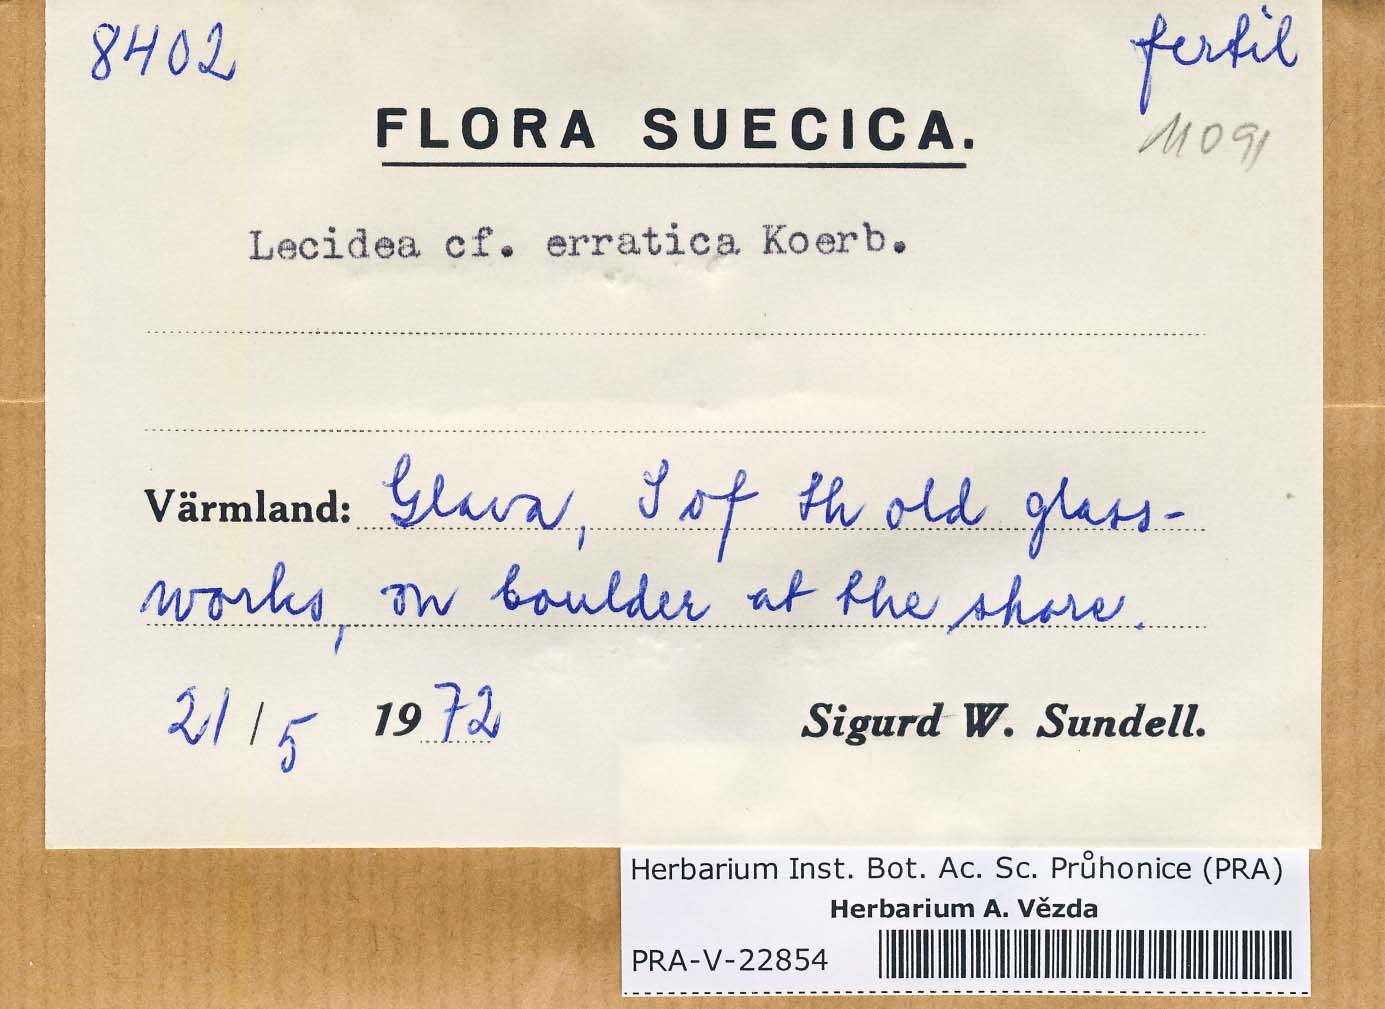 8402
fertil
FLORA SUECICA.
11091
Lecidea cf. erratica Koerb.
Värmland: Glava, S of th old glass-
works, on boulder at the shore.
21/5 1972
Sigurd W. Sundell.
Herbarium Inst. Bot. Ac. Sc. Průhonice (PRA)
Herbarium A. Vězda
PRA-V-22854